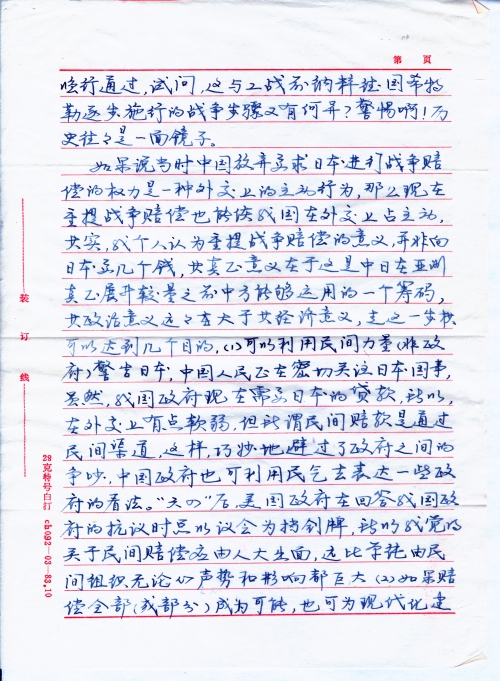 第 页
恰行通过,试问,这与二战前纳粹德国希特
勒逐步施行的战争步骤又有何异?警惕啊!历
史往々是一面镜子。
如果说当时中国放弃要求日本进行战争赔
偿的权力是一种外交上的主动行为,那么现在
重提战争赔偿也能使我国在外交上占主动,
其实,我个人认为重提战争赔偿的意义,并非向
日本要几个钱,其真正意义在于这是中日在亚洲
真正展开较量之前中方能够运用的一个筹码,
其政治意义远々大于其经济意义,走这一步棋
可以达到几个目的,(1)可以利用民间力量(非政
府)警告日本,中国人民正在密切关注日本国事,
虽然,我国政府现在需要日本的贷款,所以,
在外交上有点软弱,但所谓民间赔款是通过
民间渠道,这样,巧妙地避过了政府之间的
争吵,中国政府也可利用民气去表达一些政
府的看法。“六四”后,美国政府在回答我国政
府的抗议时总以议会为挡剑牌,所以我觉的
关于民间赔偿应由人大出面,这比单纯由民
间组织无论从声势和影响都巨大(2)如果赔
偿全部(或部分)成为可能,也可为现代化建
装 订 线
28克特号白打 ch092—03—83.10